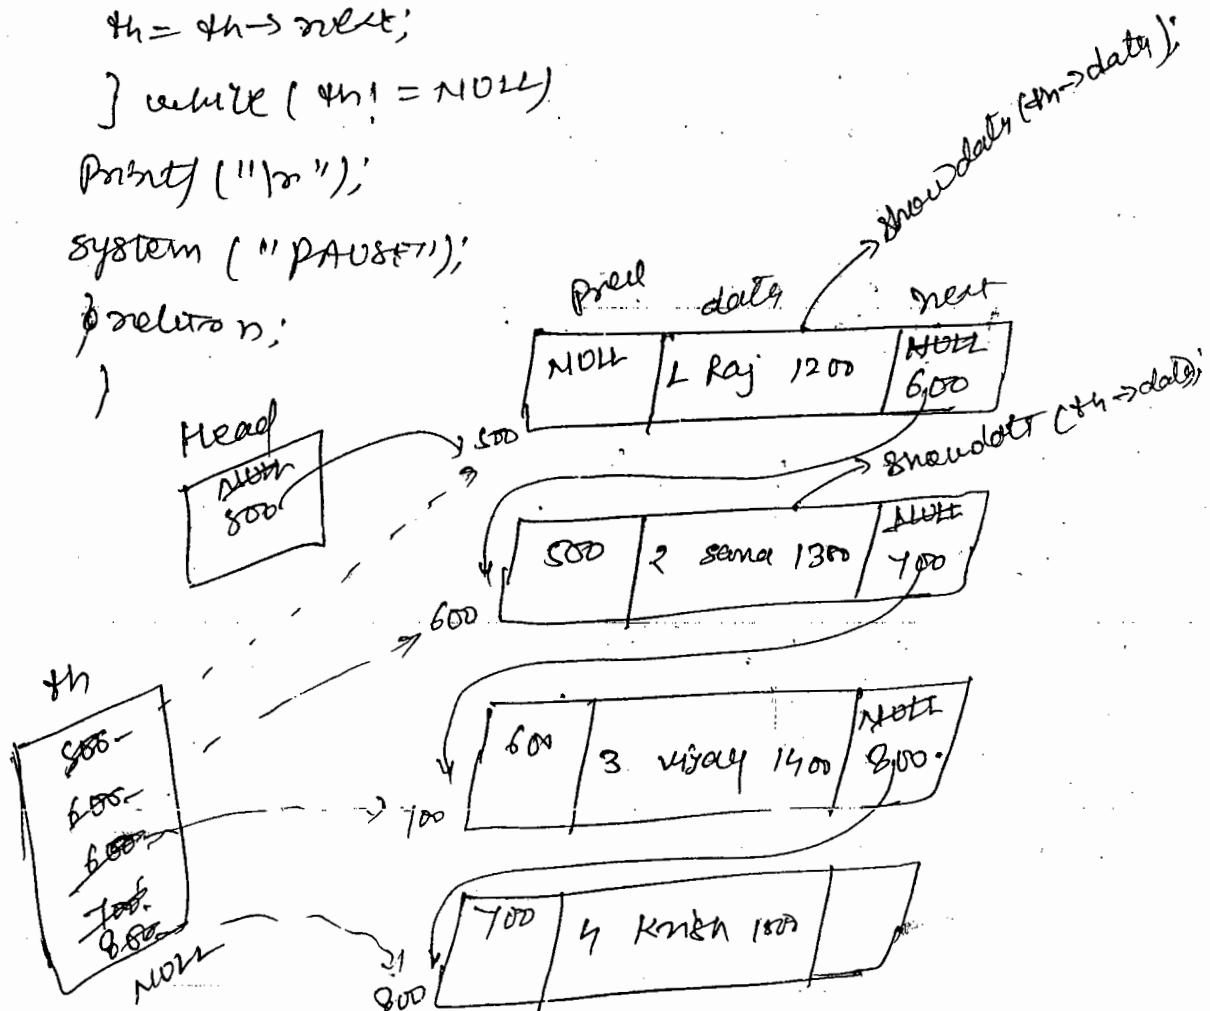 th = th -> next;
} while ( th! = NULL)
Printf ("\n");
system ("PAUSE");
return;
}
showdata (th->data);
Prev data next
NULL 1 Raj 1200 NULL 600
Head
NULL
500
500
showdata (th->data);
500 2 sana 1300 NULL 700
600
th
500
600
600
700
800
NULL
600 3 vijay 1400 NULL 800
700
700 4 Krish 1500
800